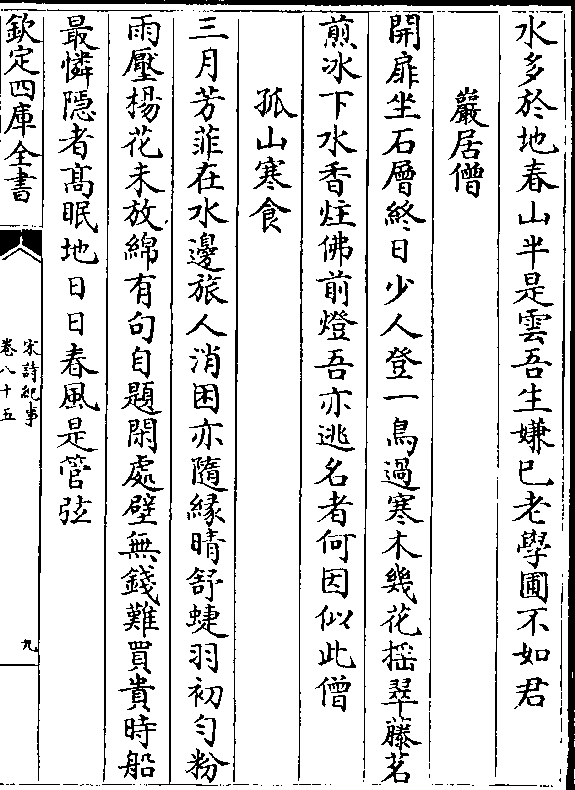 水多於地春山半是雲吾生嫌已老學圃不如君
巖居僧
開扉坐石層終日少人登一鳥過寒木幾花揺翠藤茗
煎冰下水香炷佛前燈吾亦逃名者何因似此僧
孤山寒食
三月芳菲在水邊旅人消困亦隨縁晴舒蜨羽初匀粉
雨壓楊花未放綿有句自題閑處壁無錢難買貴時船
最憐隠者髙眠地日日春風是管弦
欽定四庫全書
宋詩紀事
卷八十五
九